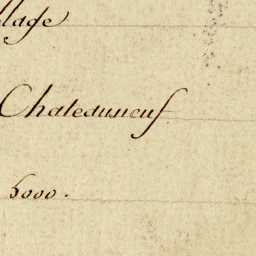 llage
Chateauneuf
5000.